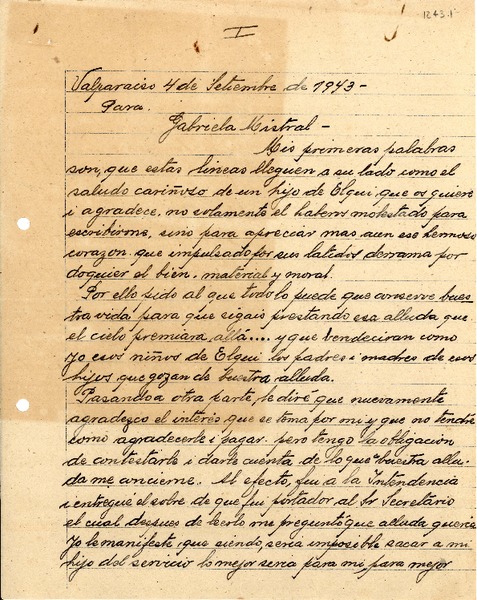 I
Valparaiso 4 de Setiembre de 1943-
Para.
Gabriela Mistral-
Mis primeras palabras
son, que estas lineas lleguen a su lado como el
saludo cariñoso de un hijo de Elqui que os quiere
i agradece. no solamente el haberos molestado para
escribirme, sino para apreciar mas aun ese hermoso
corazon que impulsado por sus latidos derrama por
doquier el bien, material y moral.
Por ello pido al que todo lo puede que conserve bues
tra vida para que sigais prestando esa alluda que
el cielo premiara allá.... y que bendeciran como
yo esos niños de Elqui los padres i madres de esos
hijos que gozan de buestra alluda.
Pasando a otra parte, te diré que nuevamente
agradezco el interés que se toma por mi y que no tendré
como agradecerte i pagar. pero tengo la obligacion
de contestarte i darte cuenta de lo que buestra allu-
da me concierne. Al efecto, fui a la Intendencia
i entregué el sobre de que fui portador al Sr Secretario
el cual despues de leerlo me preguntó que alluda queria
yo le manifesté, que siendo, seria imposible sacar a mi
hijo del servicio lo mejor seria para mi, para mejor